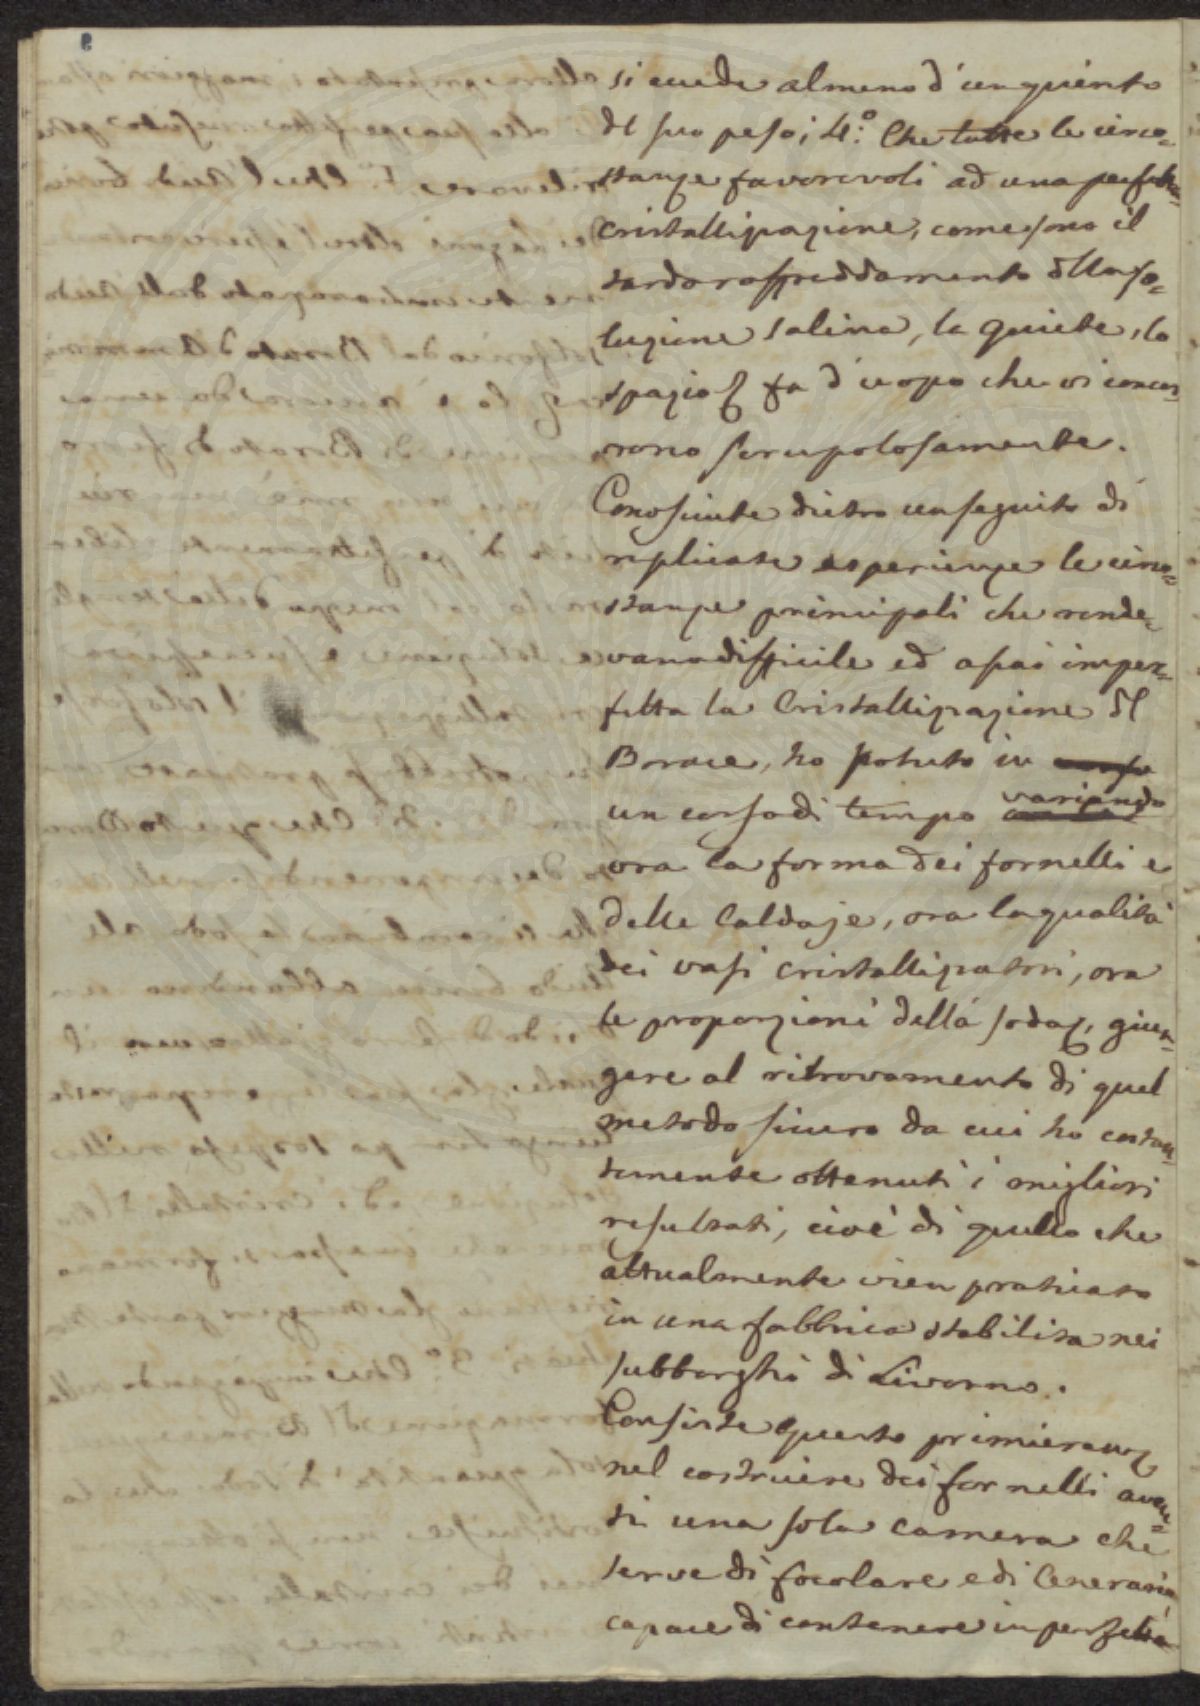 si eccede almeno d'un quinto
del suo peso; 4.º Che tutte le circo=
stanze favorevoli ad una perfetta
cristallizzazione, come sono il
tardo raffreddamento della so=
luzione salina, la quiete, lo
spazio fa d'uopo che vi concor=
rono scrupolosamente.
Conosciute dietro un seguito di
replicate esperienze le circo=
stanze principali che rende=
vano difficile ed assai imper=
fetta la Cristallizzazione del
Borace, ho potuto in
un corso di tempo variando
ora la forma dei fornelli e
delle Caldaje, ora la qualità
dei vasi cristallizzatori, ora
le proporzioni della soda, giun=
gere al ritrovamento di quel
metodo sicuro da cui ho costan=
temente ottenuti i migliori
resultati, cioè di quello che
attualmente vien praticato
in una fabbrica stabilita nei
subborghi di Livorno.
Consiste questo primieram
nel costruire dei fornelli aven=
ti una sola camera che
serve di focolare e di Cenerario,
capace di contenere in perfetta